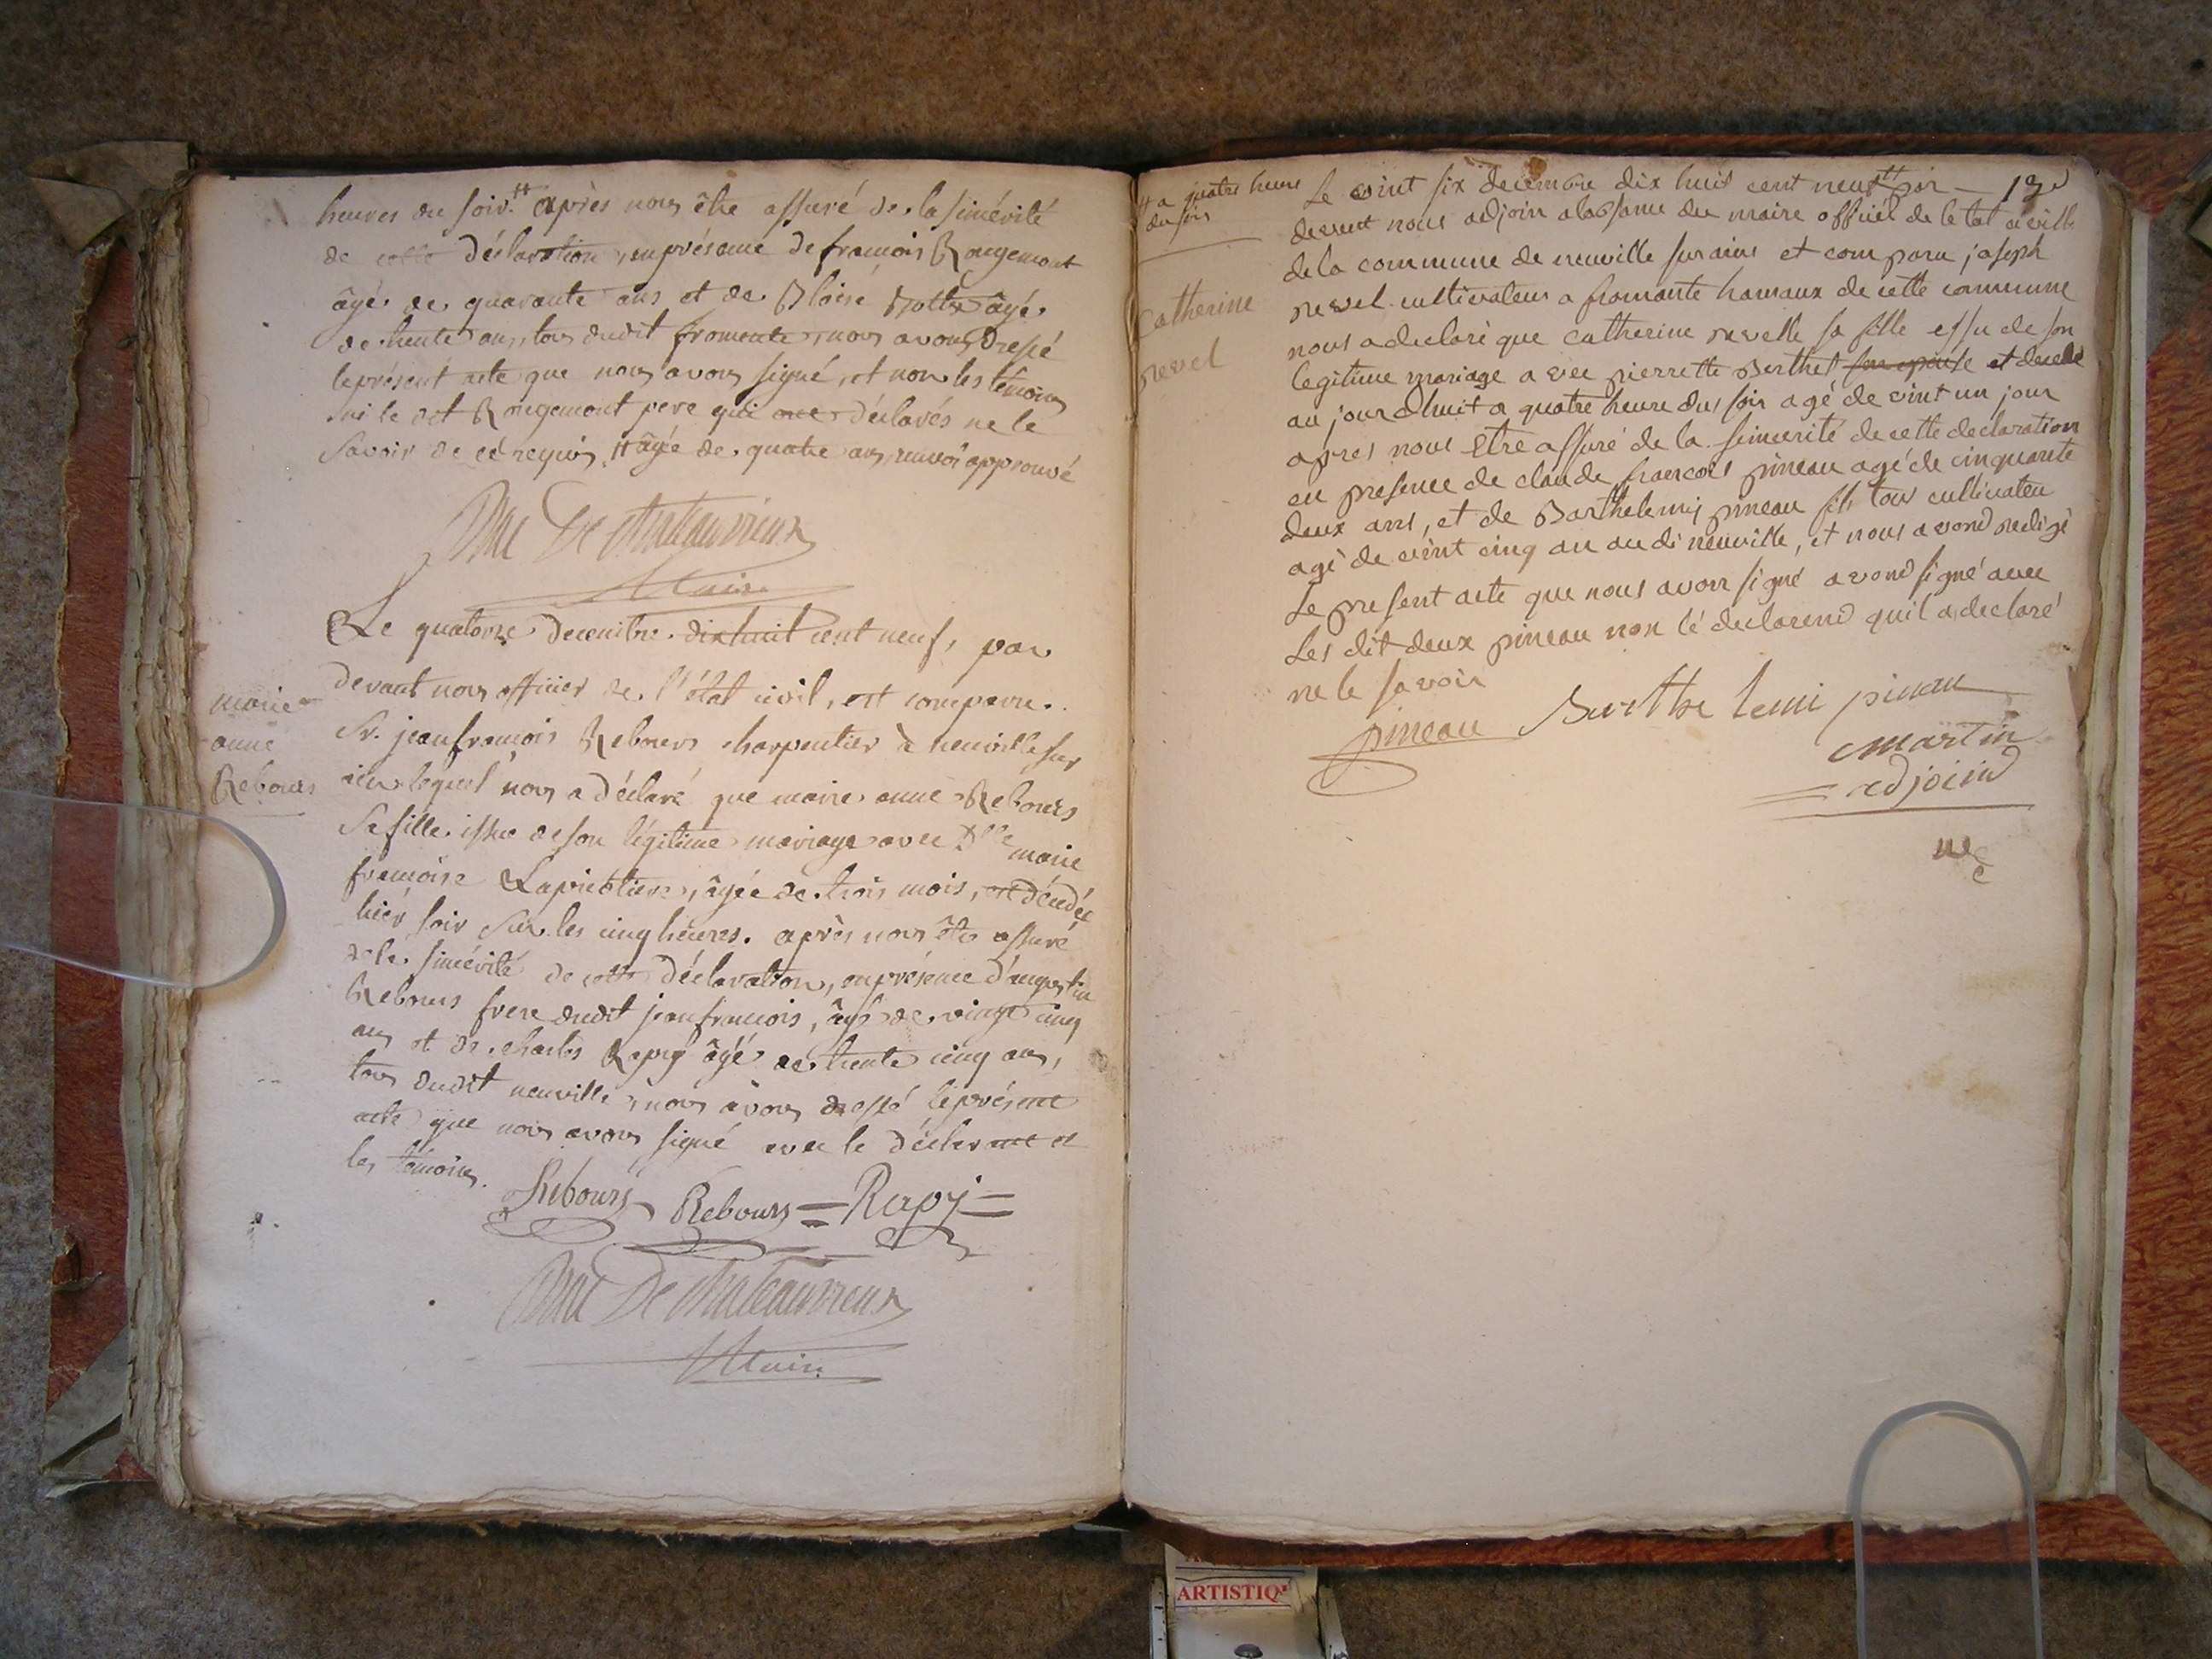 heures du soir. # après nous être assuré de la sincérité
de cette déclaration, en présence de francois Rougemont
âgé de quarante ans et de Bloise âgé
de trente ans, tous dudit fromente, nous avons dressé
le présent acte que nous avons signé, et non les témoins
ni le dit Rougemont pere qui ont déclarés ne le
savoir de ce requis. # âgée de quatre ans, renvoi approuvé
De Chateauvieux
Maire
Le quatorze decembre dix huit cent neuf, par
devant nous officier de l'état civil, est comparu
Sr. jean francois Rebours charpentier à neuville sur
ain lequel nous a déclaré que marie anne Rebours
marie
anne
Rebours
Sa fille issue de son légitime mariage avec Dlle marie
francoise, âgée de trois mois, est décédée
hier soir sur les cinq heures. après nous être assuré
de la sincérité de cette déclaration, en présence d'augustin
Rebours frere dudit jean francois, âgé de vingt cinq
ans et de charles Rapy âgé de trente cinq ans,
tous dudit neuville, nous avons dressé le présent
acte que nous avons signé avec le déclarant et
les témoins.
Rebours Rebours = Rapy =
De Chateauvieux
Maire
# a quatre heure
du soir
Catherine
revel
Le vint six decembre dix huit cent neuf # par 12
devent nous adjoin alabsance du maire officiél de le tat civille
de la commune de neuville sur ains et comparu joseph
revel cultivateur a fromante hamaux de cette commune
nous a declaré que catherine revelle sa fille essu de son
legitime mariage avec pierrette Berthet son epouse et decede
au jourdhuit a quatre heure dus soir agé de vint un jour
apres nous etre assuré de la sincerité de cette declaration
en presence de claude francois pineau agé de cinquante
deux ans, et de Barthelemy pineau fils tous cultivateu
agé de vint cinq an au di neuville, et nous avond redigé
Le present acte que nous avon signé avond signé avec
Les dit deux pineau non lé declarend quil a declaré
ne le savoir
pineau Bartthe lemi pineau
martin
adjoind
ARTISTIQ